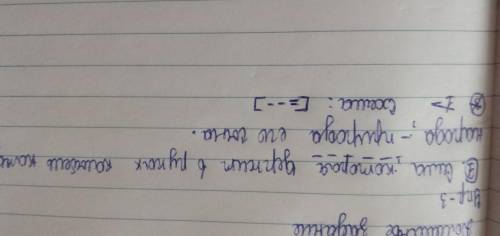 Домашнее задание
Упр-3
① Сила которая держит в руках
народа, – природа его
② 1> Схема: [=--]